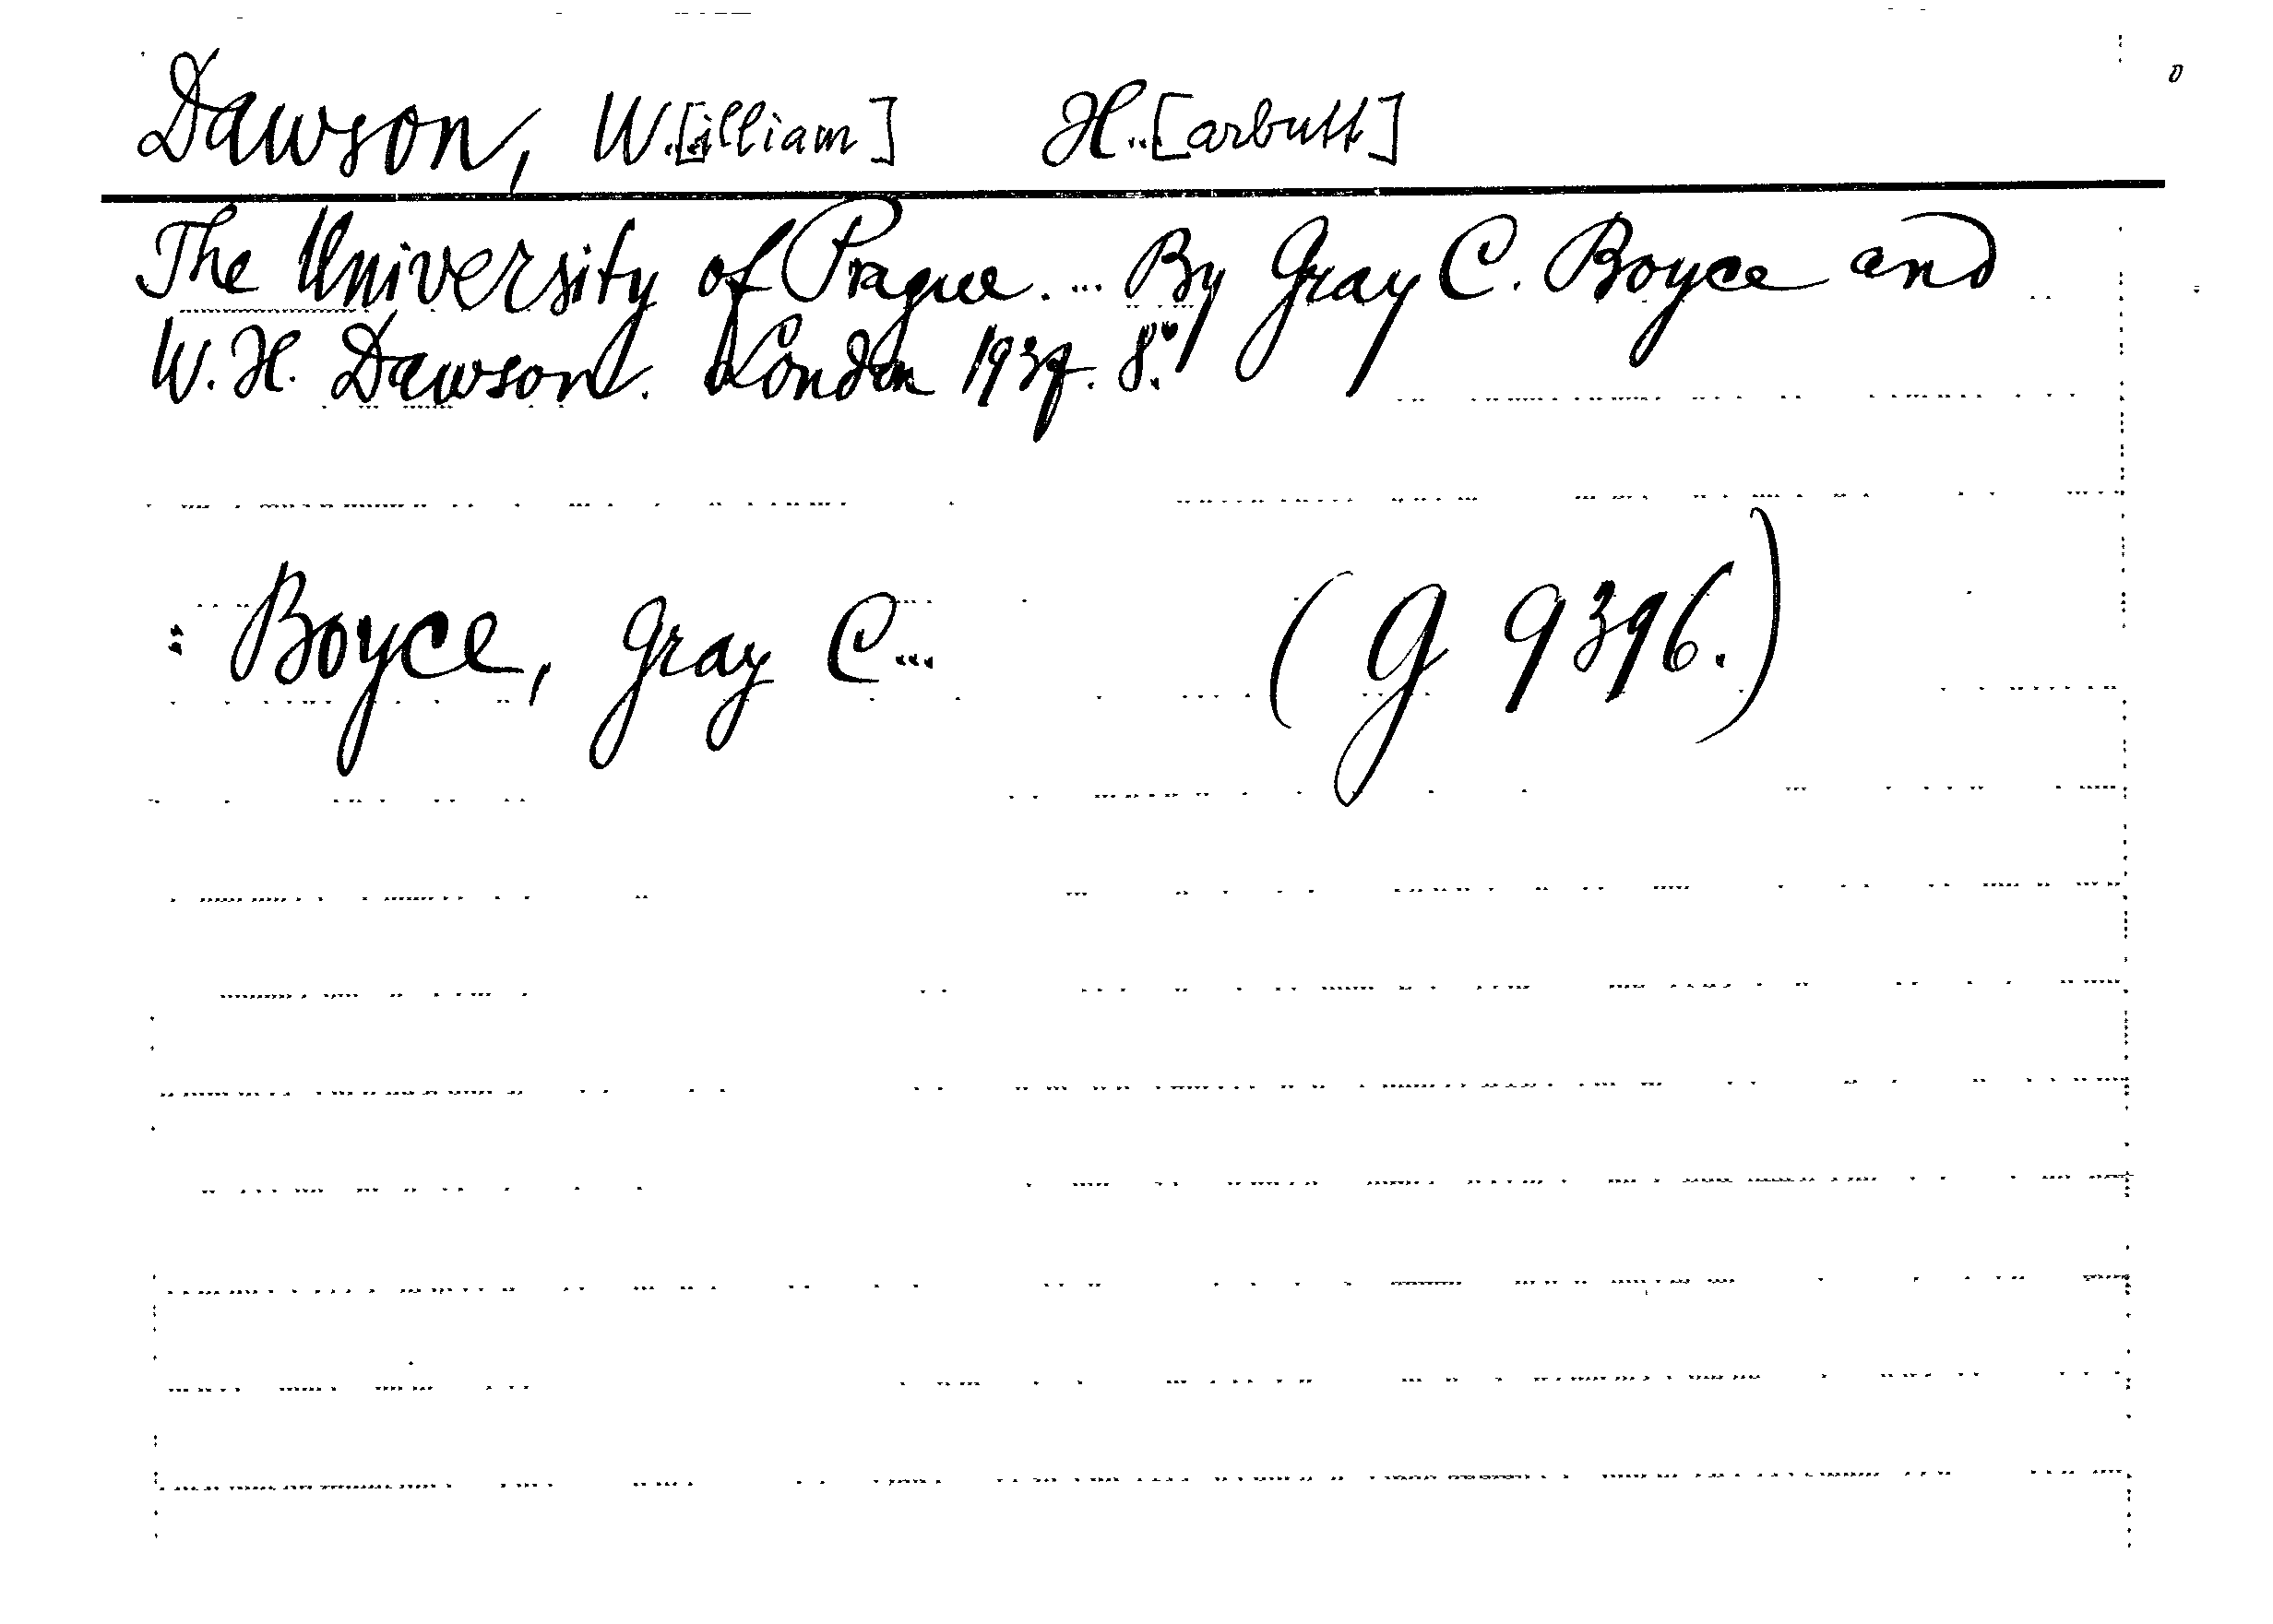 Dawson, W.[illiam] H...[arbutt]
The University of Prague. ... By Gray C. Boyce and
W. H. Dawson. London 1937. 8.°
: Boyce, Gray C... (G 9396.)